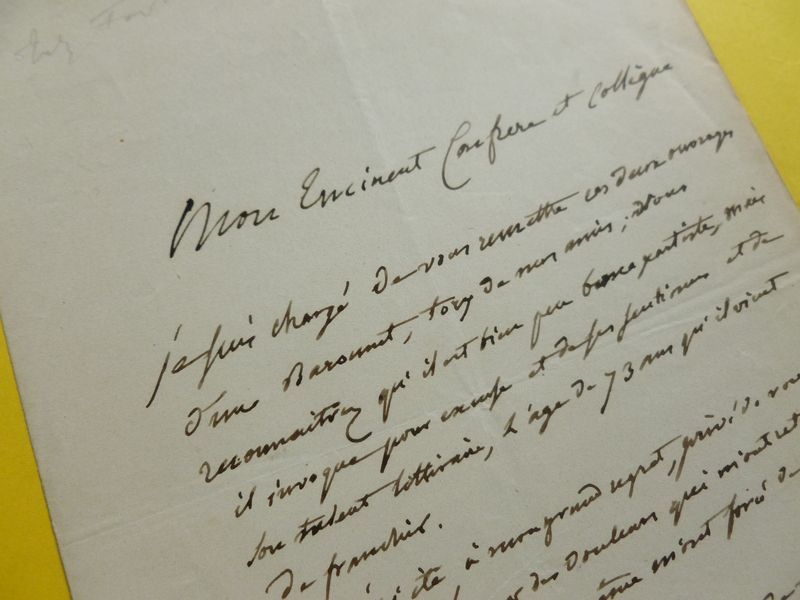 Mon Eminent Confrere et collègue
je suis chargé de vous remettre ces deux ouvrages
d'un Baronnet, tory de mes amis; Vous
reconnaitrez qu'il est bien peu bonapartiste, mais
il invoque pour excuse et de ses sentimens et de
son talent littéraire, l'âge de 73 ans qu'il vient
de franchir.
été, à mon grand regret, privé de vous
des douleurs qui m'ont
m'ont forcé de